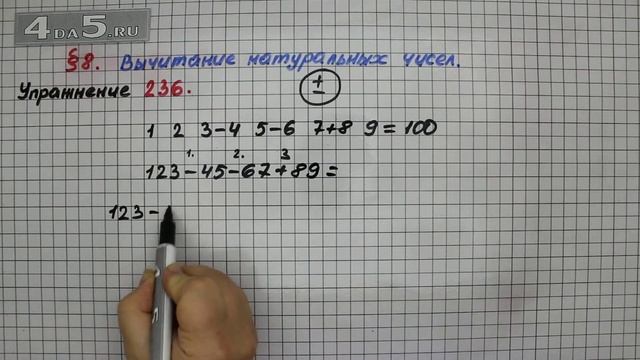 4DA5.RU
§8. Вычитание натуральных чисел.
Упражнение 236.
+
−
1 2 3-4 5-6 7+8 9=100
1. 2. 3
123-45-67+89=
123-